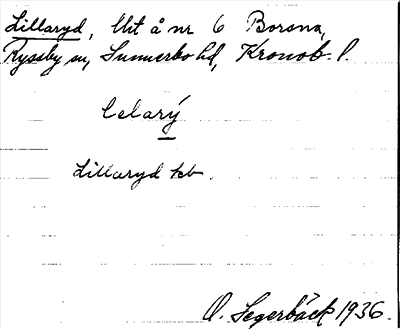 Lillaryd, lht å nr 6 Borsna,
Ryssby sn, Sunnerbo hd, Kronob. l.
lelarý
Lillaryd kb.
O. Segerbäck 1936.